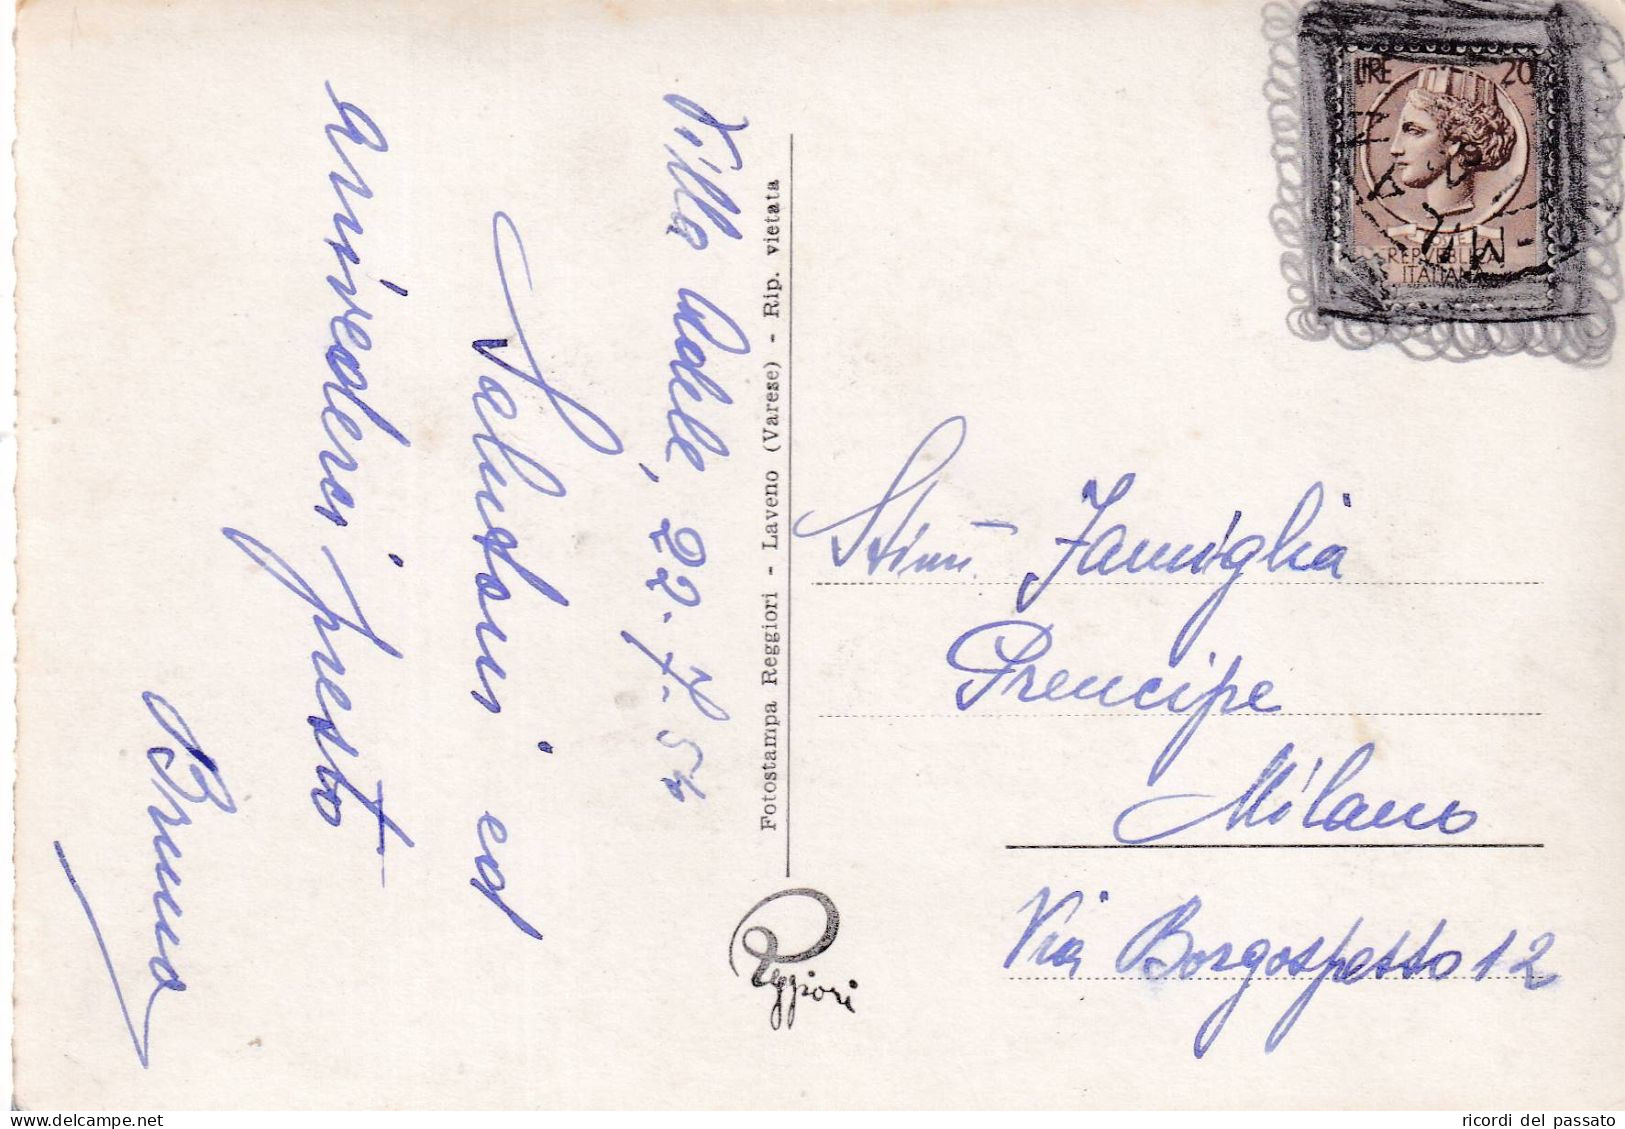 Villa Adele, 22-7-54
Saluton ed
arrivederci presto
Bruna
Fotostampa Reggiori - Laveno (Varese) - Rip. vietata
Reggiori
LIRE 20
REPVBBLICA
ITALIANA
Stim. Famiglia
Prencipe
Milano
Via Borgospesso 12
ricordi del passato